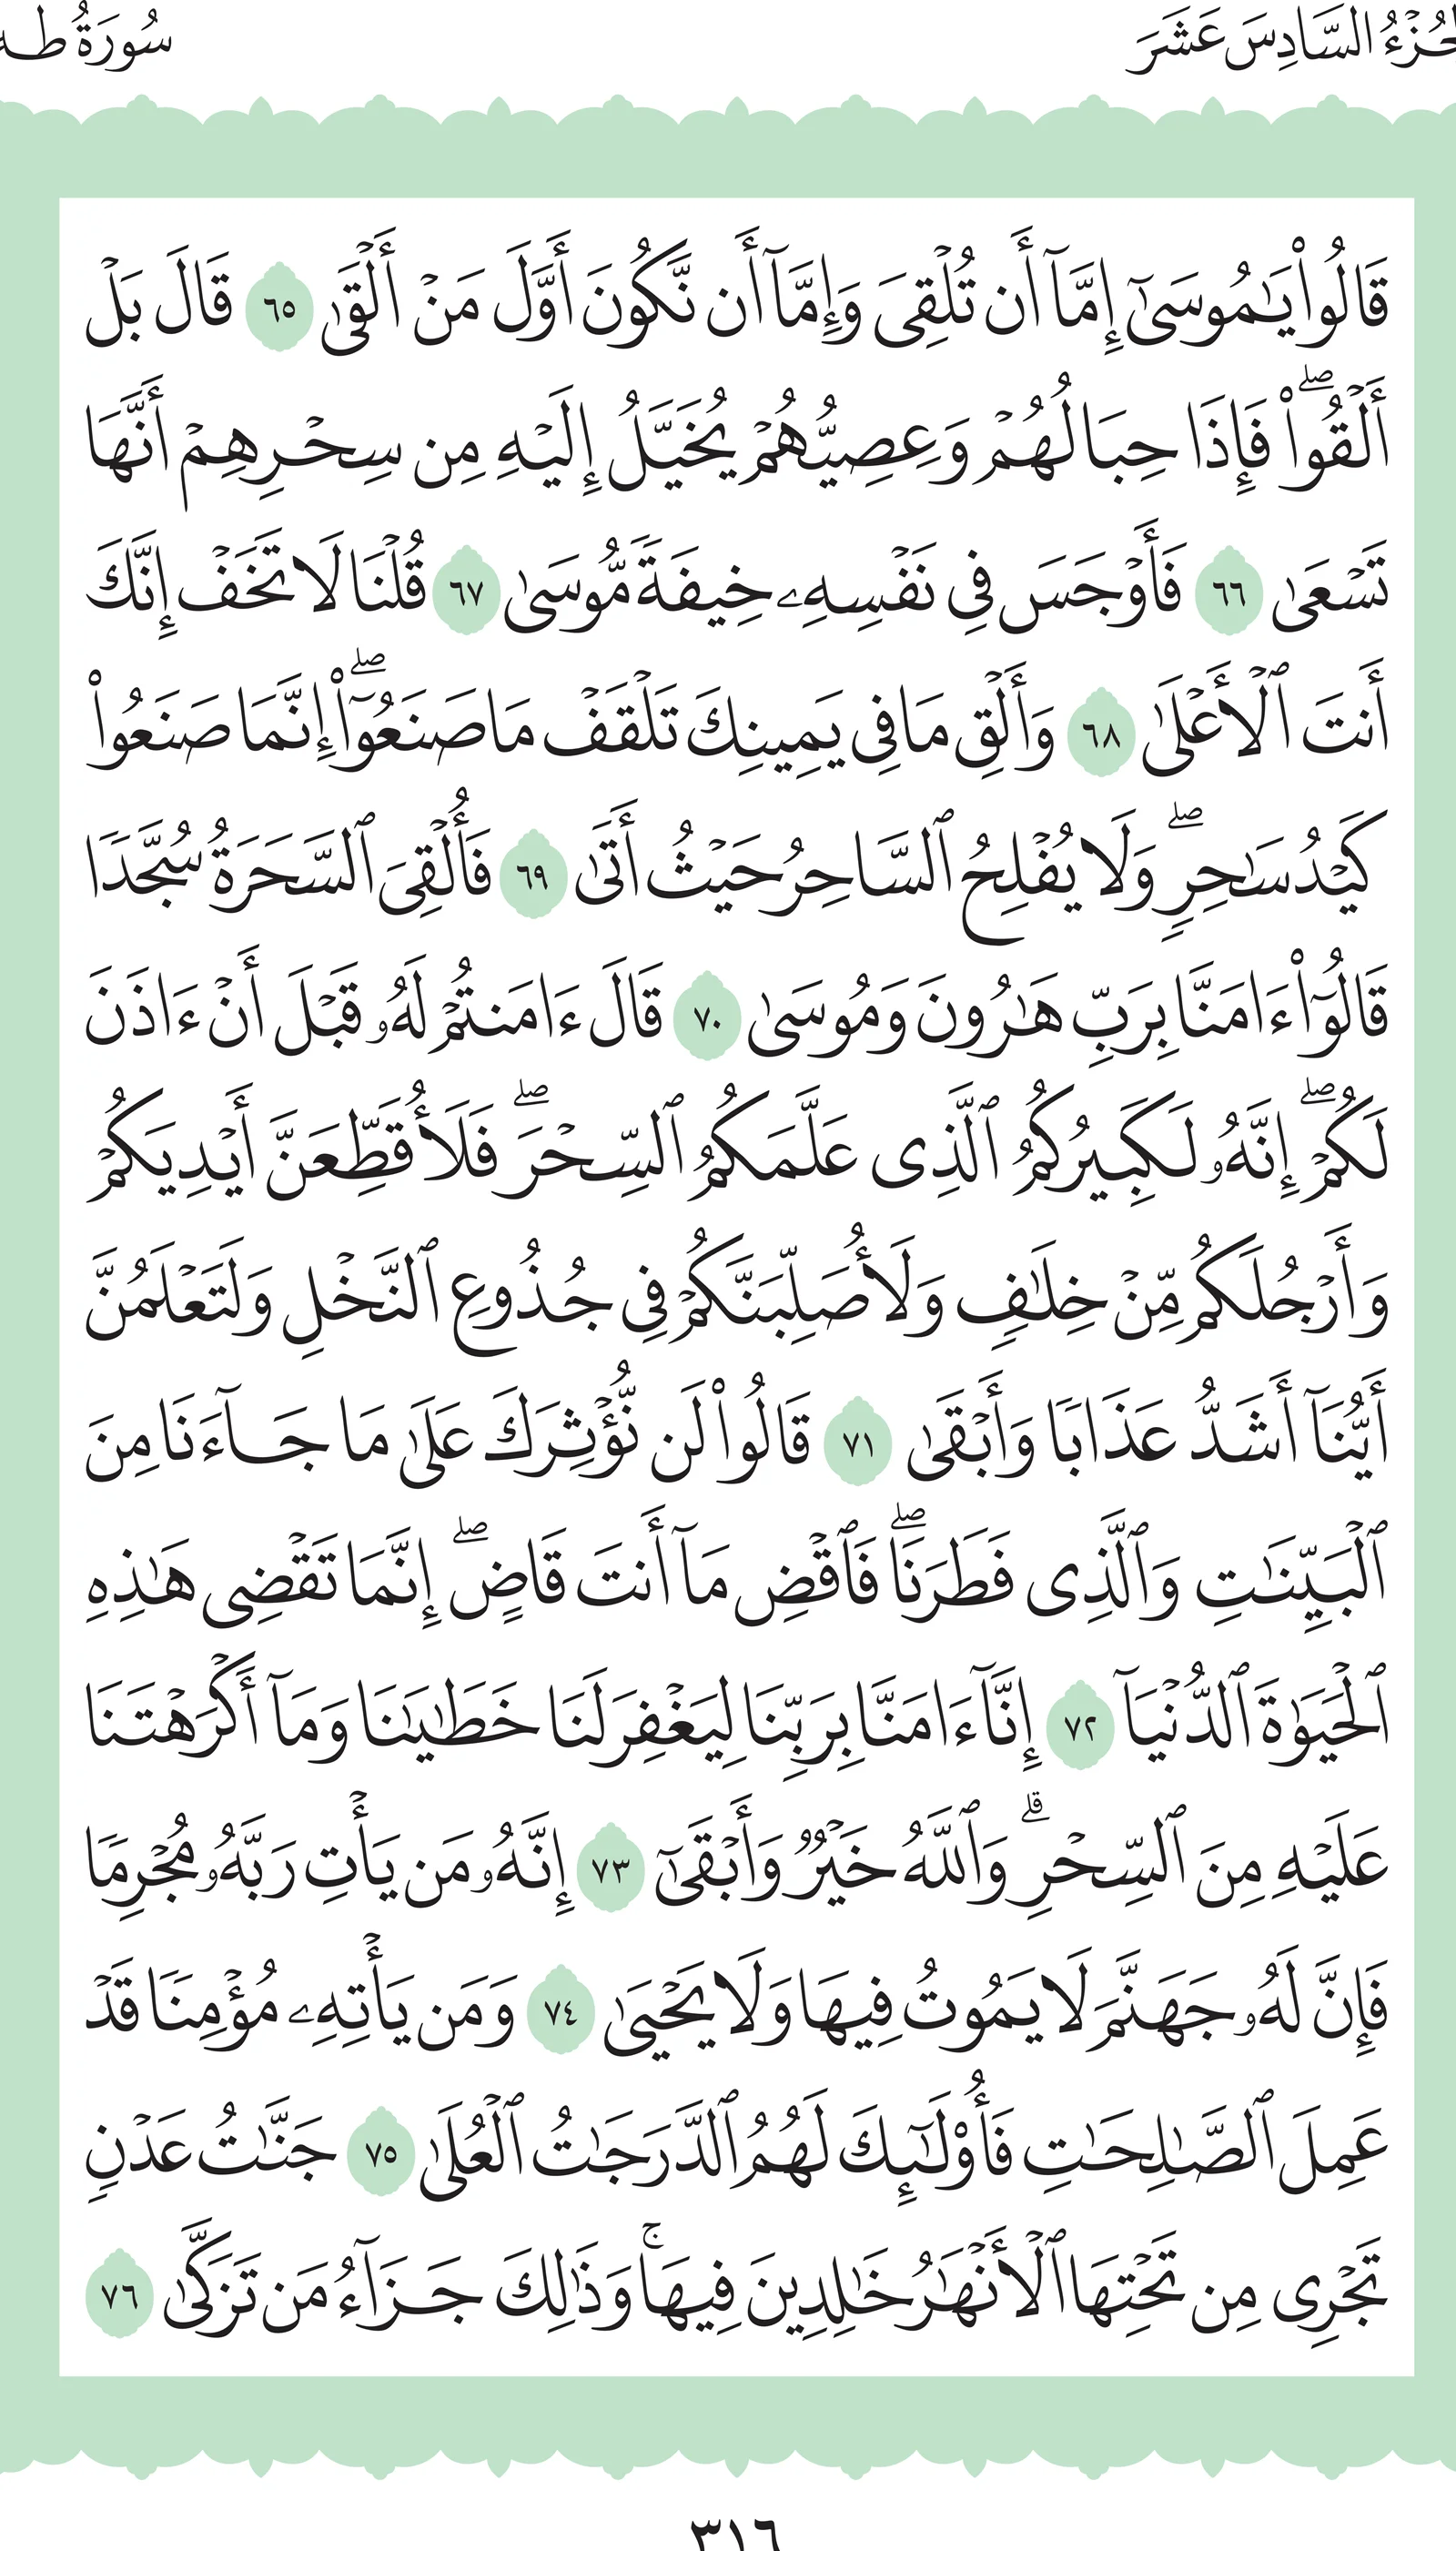 الجُزْءُ السَّادِسَ عَشَرَ سُورَةُ طه
قَالُوا۟ يَـٰمُوسَىٰٓ إِمَّآ أَن تُلْقِىَ وَإِمَّآ أَن نَّكُونَ أَوَّلَ مَنْ أَلْقَىٰ ٦٥ قَالَ بَلْ
أَلْقُوا۟ۖ فَإِذَا حِبَالُهُمْ وَعِصِيُّهُمْ يُخَيَّلُ إِلَيْهِ مِن سِحْرِهِمْ أَنَّهَا
تَسْعَىٰ ٦٦ فَأَوْجَسَ فِى نَفْسِهِۦ خِيفَةً مُّوسَىٰ ٦٧ قُلْنَا لَا تَخَفْ إِنَّكَ
أَنتَ ٱلْأَعْلَىٰ ٦٨ وَأَلْقِ مَا فِى يَمِينِكَ تَلْقَفْ مَا صَنَعُوٓا۟ۖ إِنَّمَا صَنَعُوا۟
كَيْدُ سَـٰحِرٍۖ وَلَا يُفْلِحُ ٱلسَّاحِرُ حَيْثُ أَتَىٰ ٦٩ فَأُلْقِىَ ٱلسَّحَرَةُ سُجَّدًا
قَالُوٓا۟ ءَامَنَّا بِرَبِّ هَـٰرُونَ وَمُوسَىٰ ٧٠ قَالَ ءَامَنتُمْ لَهُۥ قَبْلَ أَنْ ءَاذَنَ
لَكُمْۖ إِنَّهُۥ لَكَبِيرُكُمُ ٱلَّذِى عَلَّمَكُمُ ٱلسِّحْرَۖ فَلَأُقَطِّعَنَّ أَيْدِيَكُمْ
وَأَرْجُلَكُم مِّنْ خِلَـٰفٍ وَلَأُصَلِّبَنَّكُمْ فِى جُذُوعِ ٱلنَّخْلِ وَلَتَعْلَمُنَّ
أَيُّنَآ أَشَدُّ عَذَابًا وَأَبْقَىٰ ٧١ قَالُوا۟ لَن نُّؤْثِرَكَ عَلَىٰ مَا جَآءَنَا مِنَ
ٱلْبَيِّنَـٰتِ وَٱلَّذِى فَطَرَنَاۖ فَٱقْضِ مَآ أَنتَ قَاضٍۖ إِنَّمَا تَقْضِى هَـٰذِهِ
ٱلْحَيَوٰةَ ٱلدُّنْيَآ ٧٢ إِنَّآ ءَامَنَّا بِرَبِّنَا لِيَغْفِرَ لَنَا خَطَـٰيَـٰنَا وَمَآ أَكْرَهْتَنَا
عَلَيْهِ مِنَ ٱلسِّحْرِۗ وَٱللَّهُ خَيْرٌ وَأَبْقَىٰٓ ٧٣ إِنَّهُۥ مَن يَأْتِ رَبَّهُۥ مُجْرِمًا
فَإِنَّ لَهُۥ جَهَنَّمَ لَا يَمُوتُ فِيهَا وَلَا يَحْيَىٰ ٧٤ وَمَن يَأْتِهِۦ مُؤْمِنًا قَدْ
عَمِلَ ٱلصَّـٰلِحَـٰتِ فَأُو۟لَـٰٓئِكَ لَهُمُ ٱلدَّرَجَـٰتُ ٱلْعُلَىٰ ٧٥ جَنَّـٰتُ عَدْنٍ
تَجْرِى مِن تَحْتِهَا ٱلْأَنْهَـٰرُ خَـٰلِدِينَ فِيهَاۚ وَذَٰلِكَ جَزَآءُ مَن تَزَكَّىٰ ٧٦
٣١٦